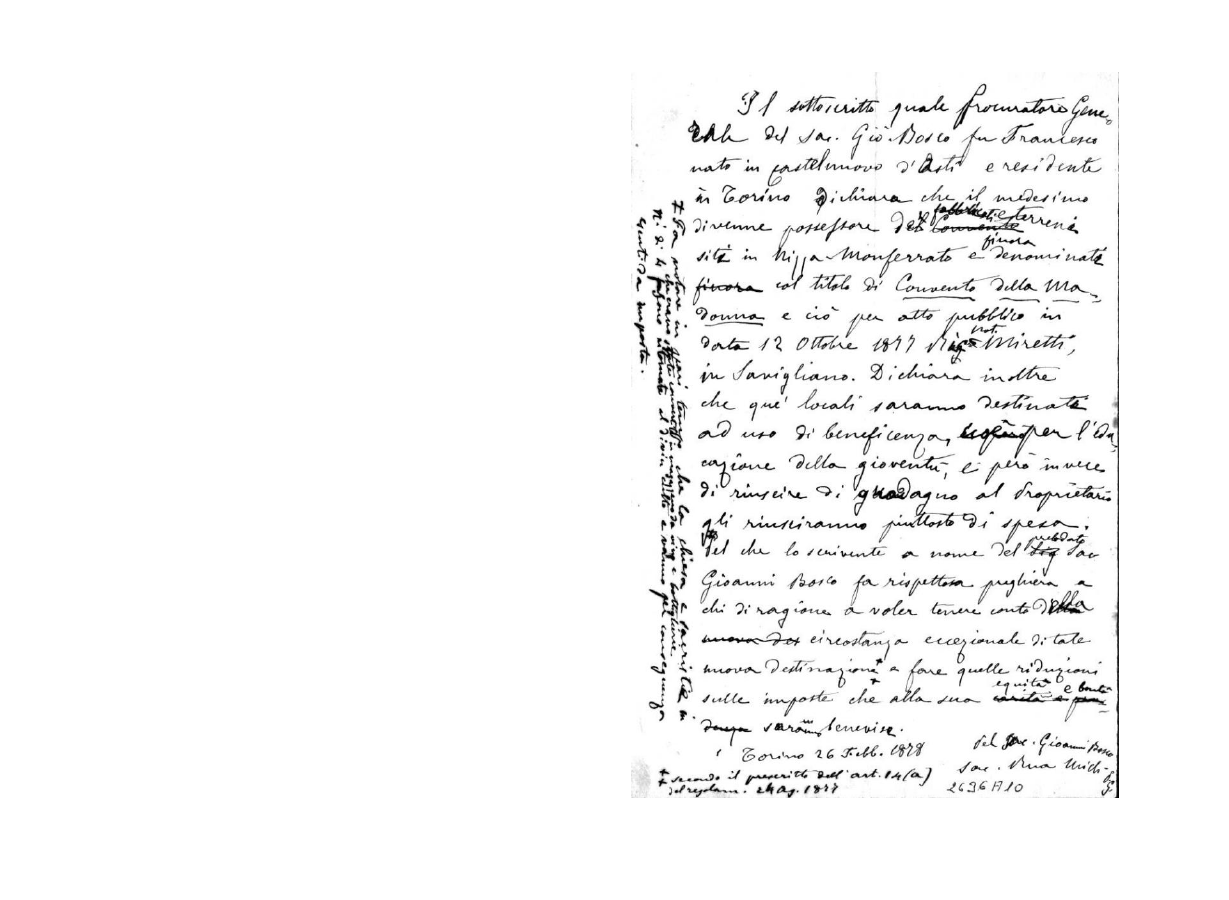 Il sottoscritto quale Procuratore Gene-
rale del Sac. Giò Bosco fu Francesco
nato in Castelnuovo d'Asti e residente
in Torino Dichiara che il medesimo
divenne possessore dei fabbricati e terreni
siti in Nizza Monferrato e denominati finora
finora col titolo di Convento della Ma-
donna e ciò per atto pubblico in
data 12 Ottobre 1877 not. Miretti,
in Savigliano. Dichiara inoltre
che que' locali saranno destinati
ad uso di beneficenza, per l'edu-
cazione della gioventù, e però invece
di riuscire di guadagno al Proprietario
gli riusciranno piuttosto di spesa.
Del che lo scrivente a nome del prelodato Sac
Gioanni Bosco fa rispettosa preghiera a
chi di ragione a voler tenere conto della
nuova des circostanza eccezionale di tale
nuova destinazione e fare quelle riduzioni
sulle imposte che alla sua equità e bontà carità e pru-
denza saranno benevise.
Torino 26 Febb. 1878
Del Sac. Gioanni Bosco
Sac. Rua Mich.
+ secondo il prescritto dell'art. 14(a)
del regolam. 24 Ag. 1877
2696 A10
+ Fa notare in pari tempo che la chiesa e sacristia
ni di 4 che erano state convertite in magazzino da vino e
furono ritornate al divin culto e vanno per conseguenza
esenti da imposta.